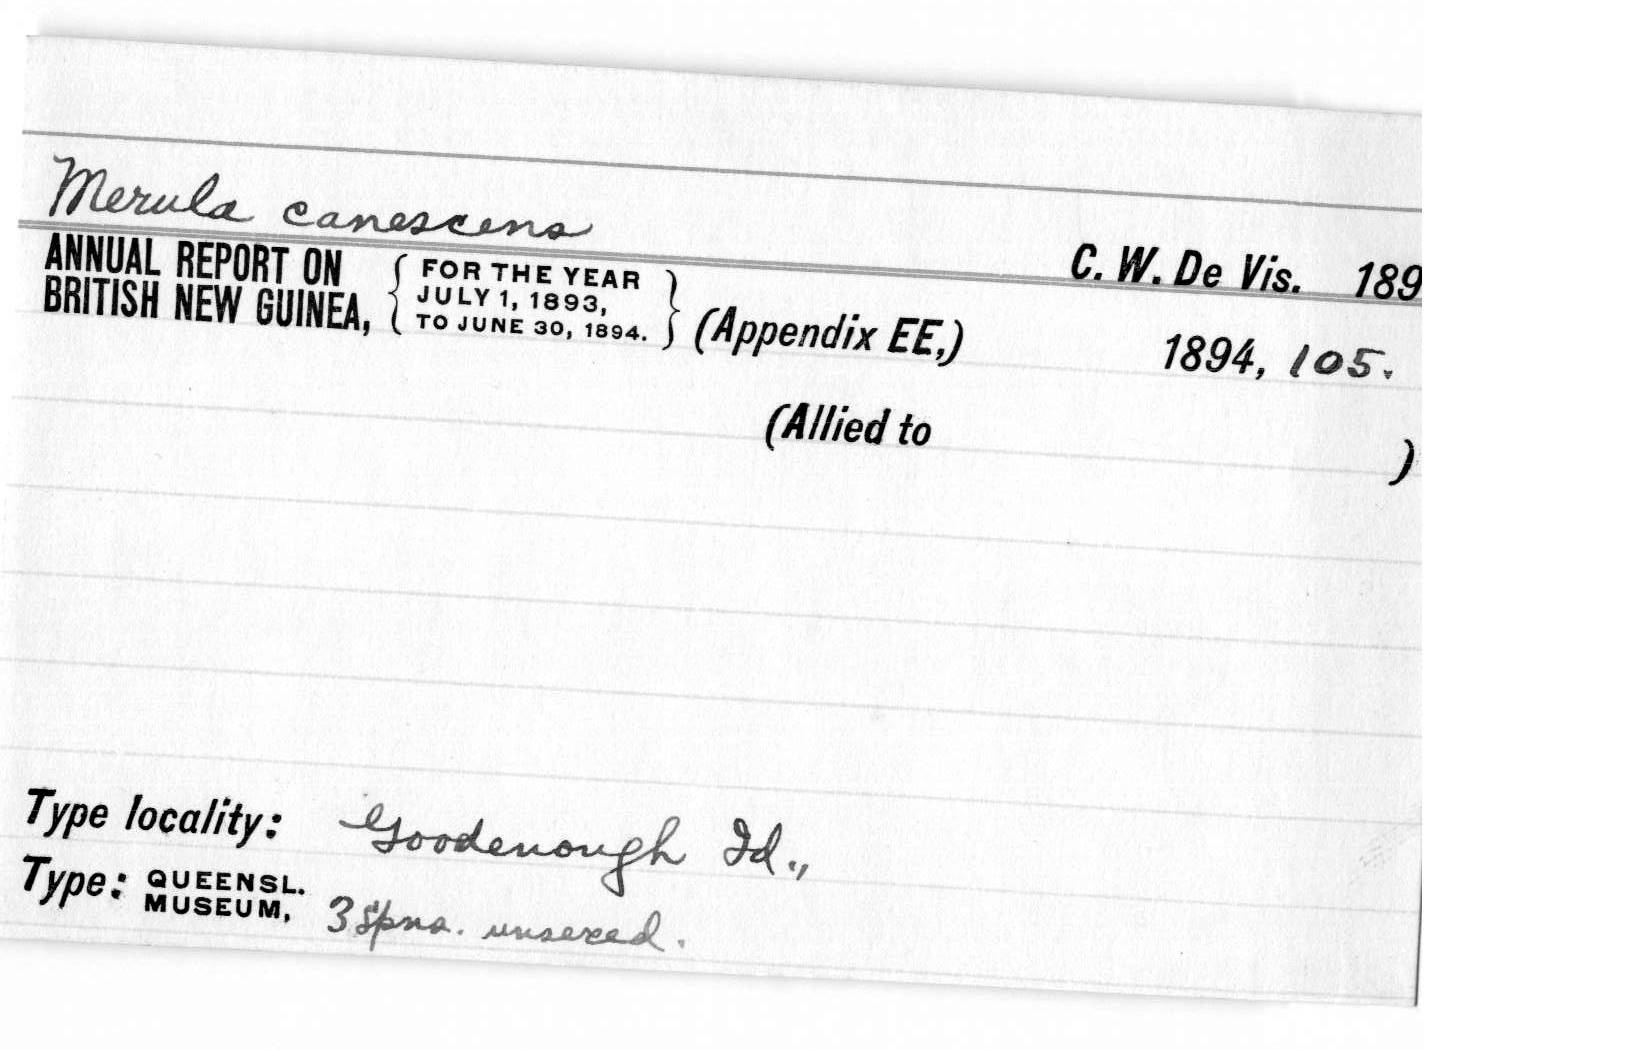 Merula canescens
C. W. De Vis. 189
ANNUAL REPORT ON { FOR THE YEAR }
BRITISH NEW GUINEA, { JULY 1, 1893, }
TO JUNE 30, 1894. (Appendix EE,) 1894, 105.
(Allied to )
Type locality: Goodenough Id.,
Type: QUEENSL.
MUSEUM, 3 spns. unsexed.